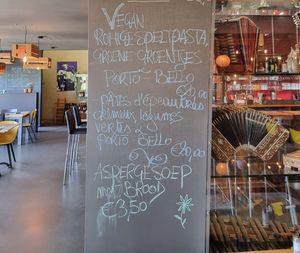 VEGAN
ROMIGE SPELTPASTA,
GROENE GROENTJES
PORTO BELLO
€20,00
PÂTES d'épeautre
crémeux légumes
vertes &
PORTO BELLO
€20,00
ASPERGESOEP
met BROOD
€3,50